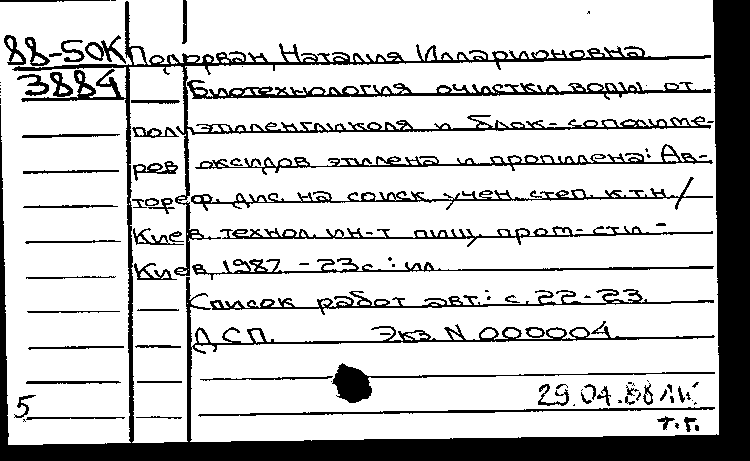 88-50К Подорван, Наталия Илларионовна
3884 Биотехнология очистки воды от
полиэтиленгликоля и блок-сополиме-
ров оксидов этилена и пропилена: Ав-
тореф. дис. на соиск. учен. степ. к.т.н./
Киев. технол. ин-т пищ. пром-сти. -
Киев, 1987. - 23с. : ил.
Список работ авт.: с. 22-23.
ДСП. Экз. N 000004.
29.04.88
5
т.г.